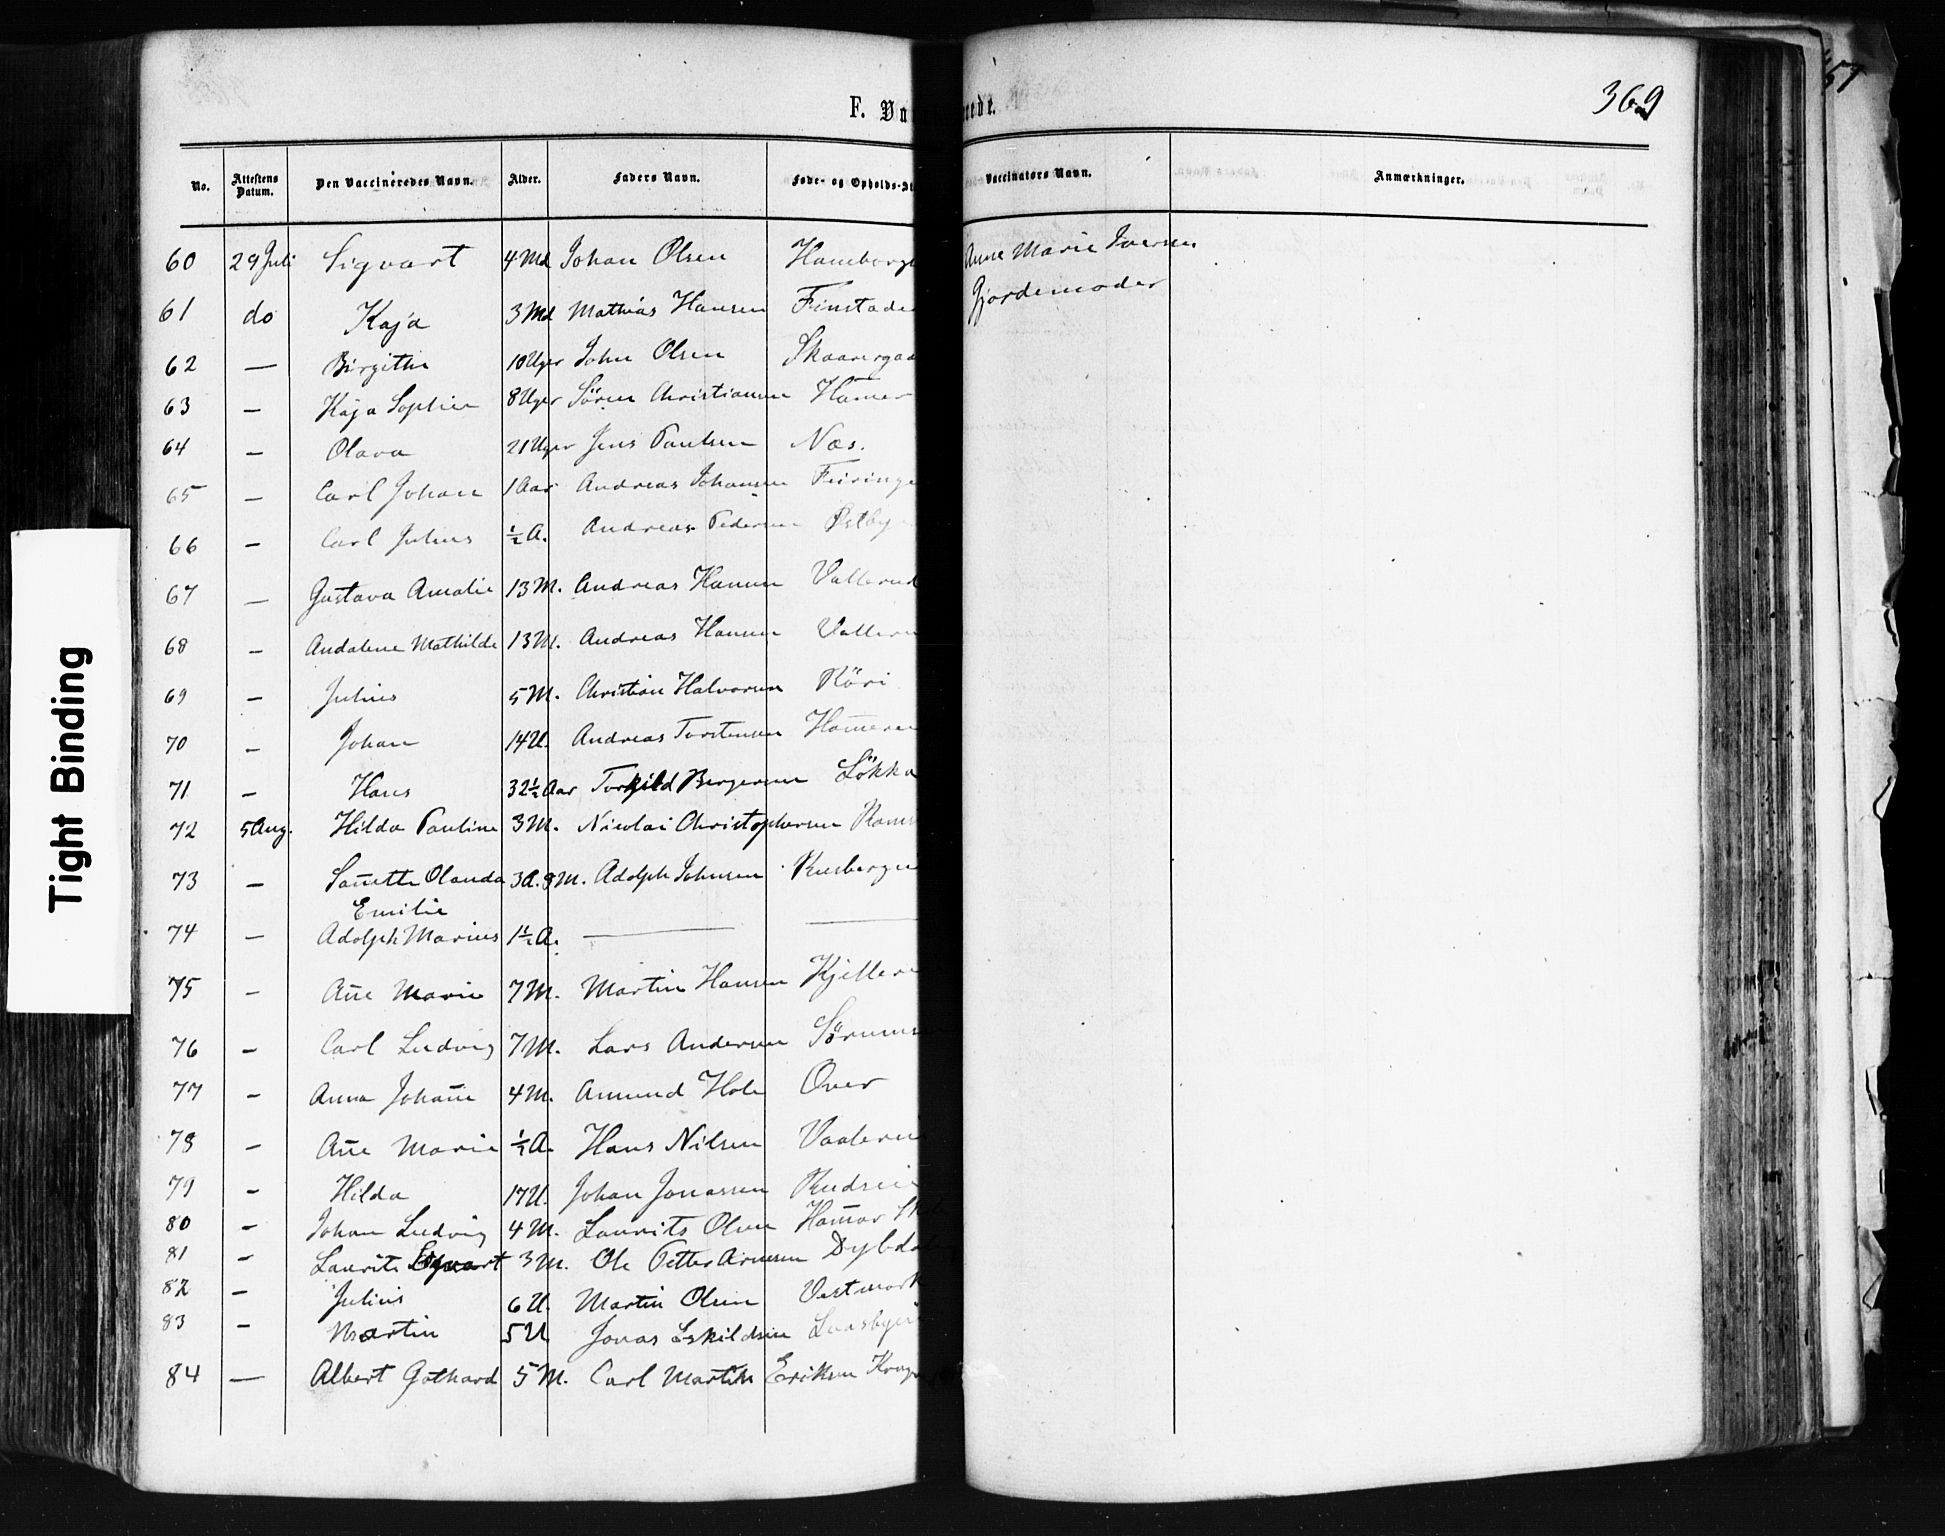 369
57
F. Va nede.
No. Attestens Datum. Den Vaccineredes Navn. Alder. Faders Navn. Føde- og Opholds-St Vaccinators Navn. Anmærkninger.
60 29 Juli Sigvart 4 Md Johan Olsen Hameborge Anne Marie Iversen
61 do Kaja 3 Md Mathias Hansen Finstade Gjordemoder
62 — Birgithe 10 Uger John Olsen Skaarergaa
63 — Kaja Sophie 8 Uger Sören Christiansen Hamer
64 — Olava 21 Uger Jens Paulsen Næs.
65 — Carl Johan 1 Aar Andreas Johansen Feiringe
66 — Carl Julius ½ A. Andreas Pedersen Østby
67 — Gustava Amalie 13 M. Andreas Hansen Vallerud
68 — Andalene Mathilde 13 M. Andreas Hansen Valleru
69 — Julius 5 M. Christian Halvorsen Röri
70 — Johan 14 U. Andreas Torstensen Ham̄eren
71 — Hans 32½ Aar Torkild Bergersen Løkka
72 5 Aug. Hilda Pauline 3 M. Nicolai Christophersen Rams
73 — San̄ette Olanda 3 A. 8 M. Adolph Johnsen Rusberge
Emilie
74 — Adolph Marius 1½ A. — —
75 — An̄e Marie 7 M. Martin Hansen Kjellere
76 — Carl Ludvig 7 M. Lars Andersen Sørums
77 — Anna Johan̄e 4 M. Amund Hole Over
78 — An̄e Marie ½ A. Hans Nilsen Vaaleru
79 — Hilda 17 U. Johan Jonassen Rudsei
80 — Johan Ludvig 4 M. Laurits Olsen Ham̄er
81 — Laurits Sigvart 3 M. Ole Petter Arnesen Dybda
82 — Julius 6 U. Martin Olsen Vestmark
83 — Martin 5 U Jonas Eskildsen Losbye
84 — Albert Gothard 5 M. Carl Martin Eriksen Kroge
Tight Binding